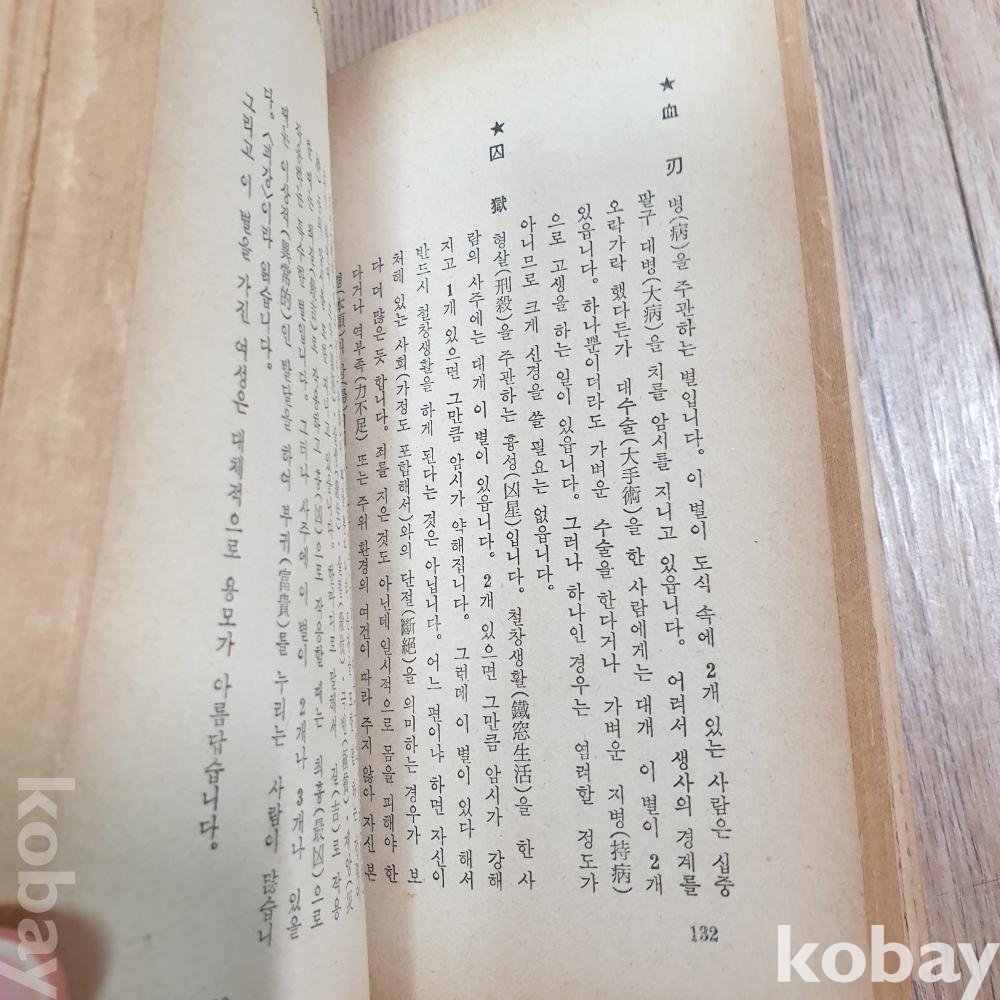 ★ 血刃
병(病)을 주관하는 별입니다. 이 별이 도식 속에 2개 있는 사람은 십중
팔구 대병(大病)을 치를 암시를 지니고 있읍니다. 어려서 생사의 경계를
오락가락 했다든가 대수술(大手術)을 한 사람에게는 대개 이 별이 2개
있읍니다. 하나뿐이더라도 가벼운 수술을 한다거나 가벼운 지병(持病)
으로 고생을 하는 일이 있읍니다. 그러나 하나인 경우는 염려할 정도가
아니므로 크게 신경을 쓸 필요는 없읍니다.
★ 囚獄
형살(刑殺)을 주관하는 흉성(凶星)입니다. 철창생활(鐵窓生活)을 한 사
람의 사주에는 대개 이 별이 있읍니다. 2개 있으면 그만큼 암시가 강해
지고 1개 있으면 그만큼 암시가 약해집니다. 그런데 이 별이 있다 해서
반드시 철창생활을 하게 된다는 것은 아닙니다. 어느 편이냐 하면 자신이
처해 있는 사회(가정도 포함해서)와의 단절(斷絕)을 의미하는 경우가 보
다 더 많은 듯 합니다. 죄를 지은 것도 아닌데 일시적으로 몸을 피해야 한
다거나 역부족(力不足) 또는 주위 환경의 여건이 따라 주지 않아 자신 본
132
특수한 별입니다. 그러나 사주에 이 별이 2개나 3개나 있을
때는 이상적(異常的)인 발달을 하여 부귀(富貴)를 누리는 사람이 많습니
다. <괴강>이라 읽습니다.
그리고 이 별을 가진 여성은 대체적으로 용모가 아름답습니다.
kobay
kobay